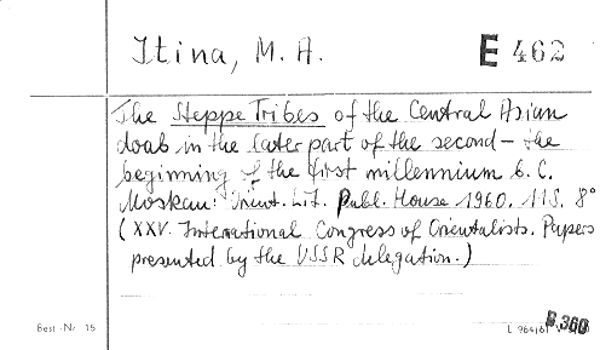 Itina, M. A.
E 462
The Steppe Tribes of the Central Asian
doab in the later part of the second – the
beginning of the first millennium b. C.
Moskau: Orient. Lit. Publ. House 1960. 11 S. 8°
(XXV. International Congress of Orientalists. Papers
presented by the USSR delegation.)
Best.-Nr. 15
B.360